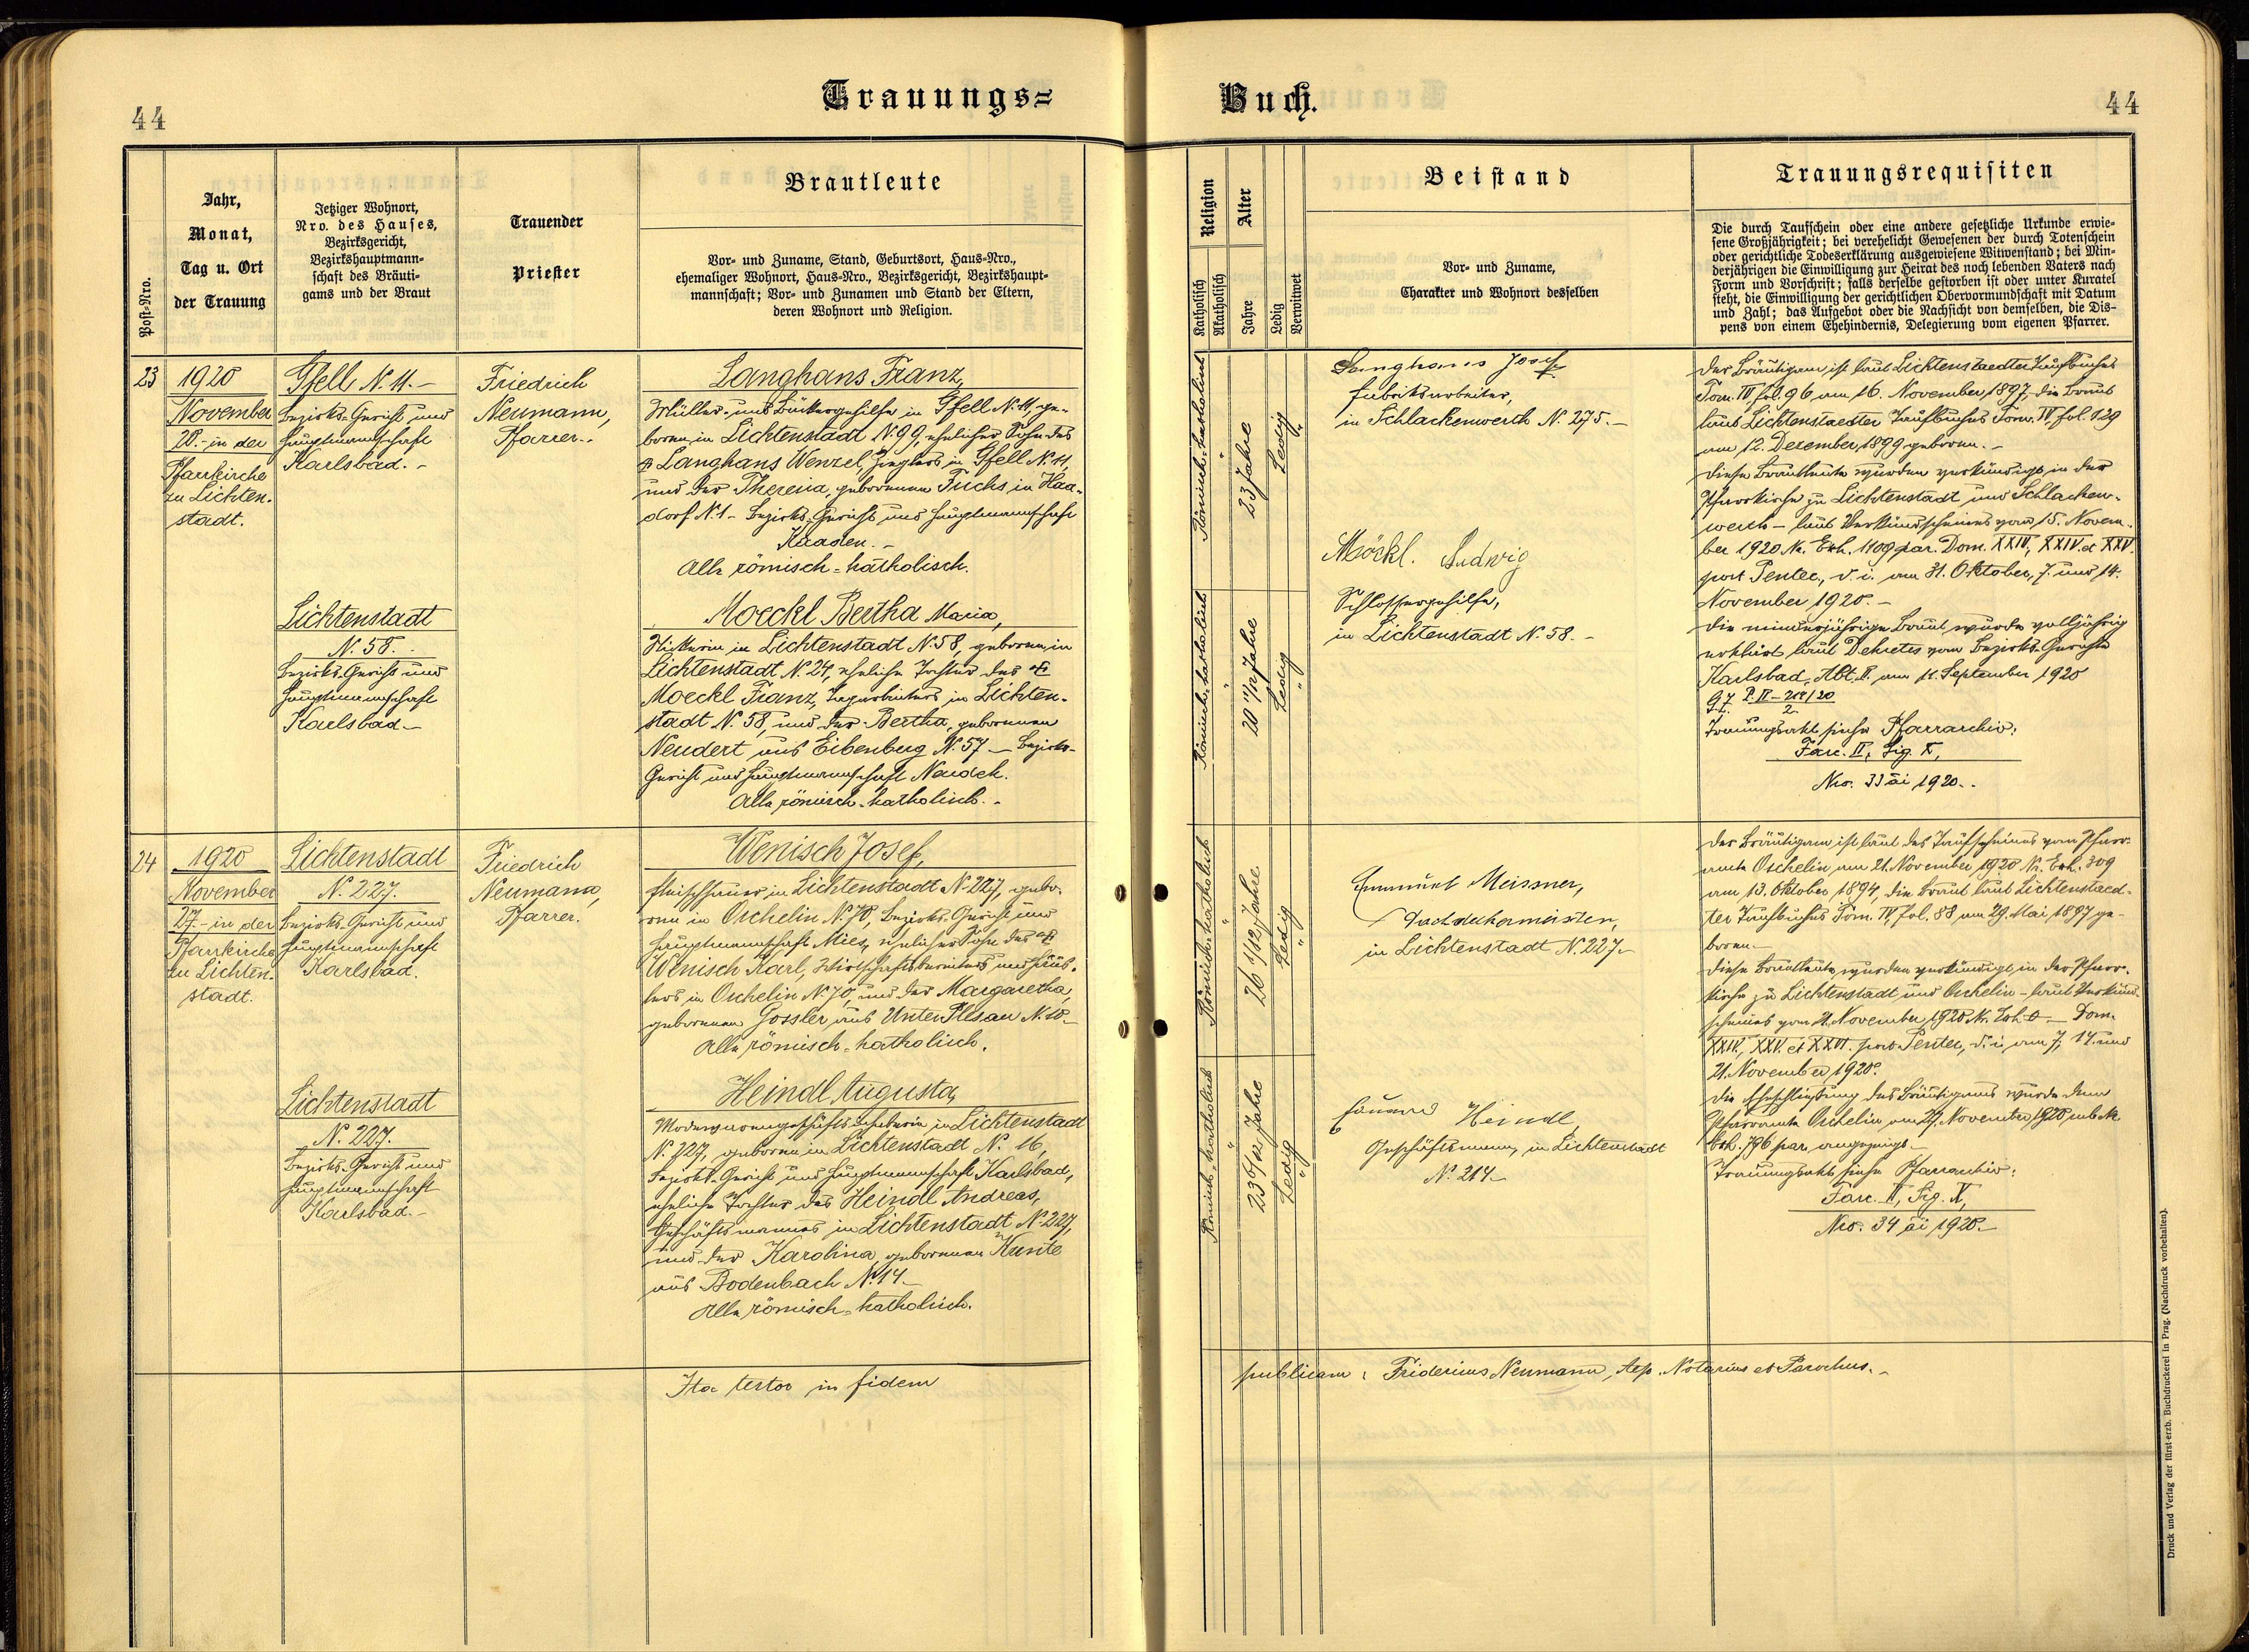 44
Trauungs=
Buch.
44
Post-Nro.
Jahr,
Monat,
Tag u. Ort
der Trauung
Jetziger Wohnort,
Nro. des Hauses,
Bezirksgericht,
Bezirkshauptmann-
schaft des Bräuti-
gams und der Braut
Trauender
Priester
Brautleute
Vor- und Zuname, Stand, Geburtsort, Haus-Nro.,
ehemaliger Wohnort, Haus-Nro., Bezirksgericht, Bezirkshaupt-
mannschaft; Vor- und Zunamen und Stand der Eltern,
deren Wohnort und Religion.
Religion
Katholisch
Akatholisch
Alter
Jahre
Ledig
Verwitwet
Beistand
Vor- und Zuname,
Charakter und Wohnort desselben
Trauungsrequisiten
Die durch Taufschein oder eine andere gesetzliche Urkunde erwie-
sene Großjährigkeit; bei verehelicht Gewesenen der durch Totenschein
oder gerichtliche Todeserklärung ausgewiesene Witwenstand; bei Min-
derjährigen die Einwilligung zur Heirat des noch lebenden Vaters nach
Form und Vorschrift; falls derselbe gestorben ist oder unter Kuratel
steht, die Einwilligung der gerichtlichen Obervormundschaft mit Datum
und Zahl; das Aufgebot oder die Nachsicht von demselben, die Dis-
pens von einem Ehehindernis, Delegierung vom eigenen Pfarrer.
23
1920
November
20.- in der
Pfarrkirche
zu Lichten-
stadt.
Gfell N. 11.-
Bezirks-Gericht und
Hauptmannschaft
Karlsbad.-
Friedrich
Neumann,
Pfarrer.-
Langhans Franz,
Müller- und Bäckergehilfe in Gfell N. 11, ge-
boren in Lichtenstadt N. 99, ehelicher Sohn des
Langhans Wenzel, Zieglers in Gfell N. 11,
und der Theresia, geborenen Fuchs, in Haa-
dorf N. 1 - Bezirks-Gericht und Hauptmannschaft
Kaaden.-
Alle römisch-katholisch.
Lichtenstadt
N. 58.
Bezirks-Gericht und
Hauptmannschaft
Karlsbad.-
Moeckl Bertha Maria,
in Lichtenstadt N. 58, geboren in
Lichtenstadt N. 24, eheliche Tochter des
Moeckl Franz, in Lichten-
stadt N. 58, und der Bertha, geborenen
Neudert aus Eibenberg N. 57 - Bezirks-
Gericht und Hauptmannschaft Neudek.
Alle römisch-katholisch.-
Römisch-katholisch
23 Jahre
Ledig
Langhans Josef
Fabriksarbeiter,
in Schlackenwerth N. 275.-
Römisch-katholisch
20 11/12 Jahre
Ledig
Möckl Ludwig
Schlossergehilfe,
in Lichtenstadt N. 58.-
Der Bräutigam ist laut Lichtenstaedter Taufbuches
Tom. IV, fol. 96 am 16. November 1897, die Braut
laut Lichtenstaedter Taufbuches Tom. IV, fol. 129
am 12. Dezember 1899 geboren.-
Diese Brautleute wurden verkündigt in der
Pfarrkirche zu Lichtenstadt und Schlacken-
werth - laut Verkündscheines vom 15. Novem-
ber 1920 Nr. Exh. 1109 par. Dom. XXIII, XXIV. et XXV.
post Pentec., d. i. am 31. Oktober, 7. und 14.
November 1920.-
Die minderjährige Braut wurde volljährig
erklärt laut Dekretes vom Bezirks-Gerichte
Karlsbad, Abt. II. am 11. September 1920
Trauungsakt siehe Pfarrarchiv:
Fasc. II, Sig. X,
Nro. 33 ai 1920.-
24
1920
November
27.- in der
Pfarrkirche
zu Lichten-
stadt.
Lichtenstadt
N. 227.
Bezirks-Gericht und
Hauptmannschaft
Karlsbad.
Friedrich
Neumann,
Pfarrer.
Wenisch Josef,
Fleischhauer in Lichtenstadt N. 227, gebo-
ren in Oschelin N. 70, Bezirks-Gericht und
Hauptmannschaft Mies, ehelicher Sohn des
Wenisch Karl, Wirtschaftsbesitzers und Häus-
lers in Oschelin N. 70, und der Margaretha,
geborenen Gossler aus Unter Plesau N. 10.-
Alle römisch-katholisch.
Lichtenstadt
N. 227.
Bezirks-Gericht und
Hauptmannschaft
Karlsbad.-
Heindl Augusta,
in Lichtenstadt
N. 227, geboren in Lichtenstadt N. 16,
Bezirks-Gericht und Hauptmannschaft Karlsbad,
eheliche Tochter des Heindl Andreas,
Geschäftsmannes in Lichtenstadt N. 227,
und der Karolina, geborenen Kunte
aus Bodenbach N. 14.-
Alle römisch-katholisch.
Römisch-katholisch
26 1/12 Jahre
Ledig
Emanuel Meissner,
Dachdeckermeister,
in Lichtenstadt N. 227.-
Römisch-katholisch
23 6/12 Jahre
Ledig
Eduard Heindl,
Geschäftsmann, in Lichtenstadt
N. 214.-
Der Bräutigam ist laut des Taufscheines vom Pfarr-
amte Oschelin am 21. November 1920 Nr. Exh. 309
am 13. Oktober 1894, die Braut laut Lichtenstaed-
ter Taufbuches Tom. IV, fol. 88 am 29. Mai 1897 ge-
boren.-
Diese Brautleute wurden verkündigt in der Pfarr-
kirche zu Lichtenstadt und Oschelin - laut Verkünd-
scheines vom 21. November 1920 Nr. Exh. 0 - Dom.
XXIV., XXV. et XXVI. post Pentec., d. i. am 7., 14. und
21. November 1920.
Die Eheschließung des Bräutigams wurde dem
Pfarramte Oschelin am 29. November 1920 sub Nr.
Exh. 796 par. angezeigt.-
Trauungsakt siehe Pfarrarchiv:
Fasc. II, Sig. X,
Nro. 34 ai 1920.-
Ita testor in fidem
publicam: Fridericus Neumann, Aep. Notarius et Parochus.-
Druck und Verlag der fürst-erzb. Buchdruckerei in Prag. (Nachdruck vorbehalten).